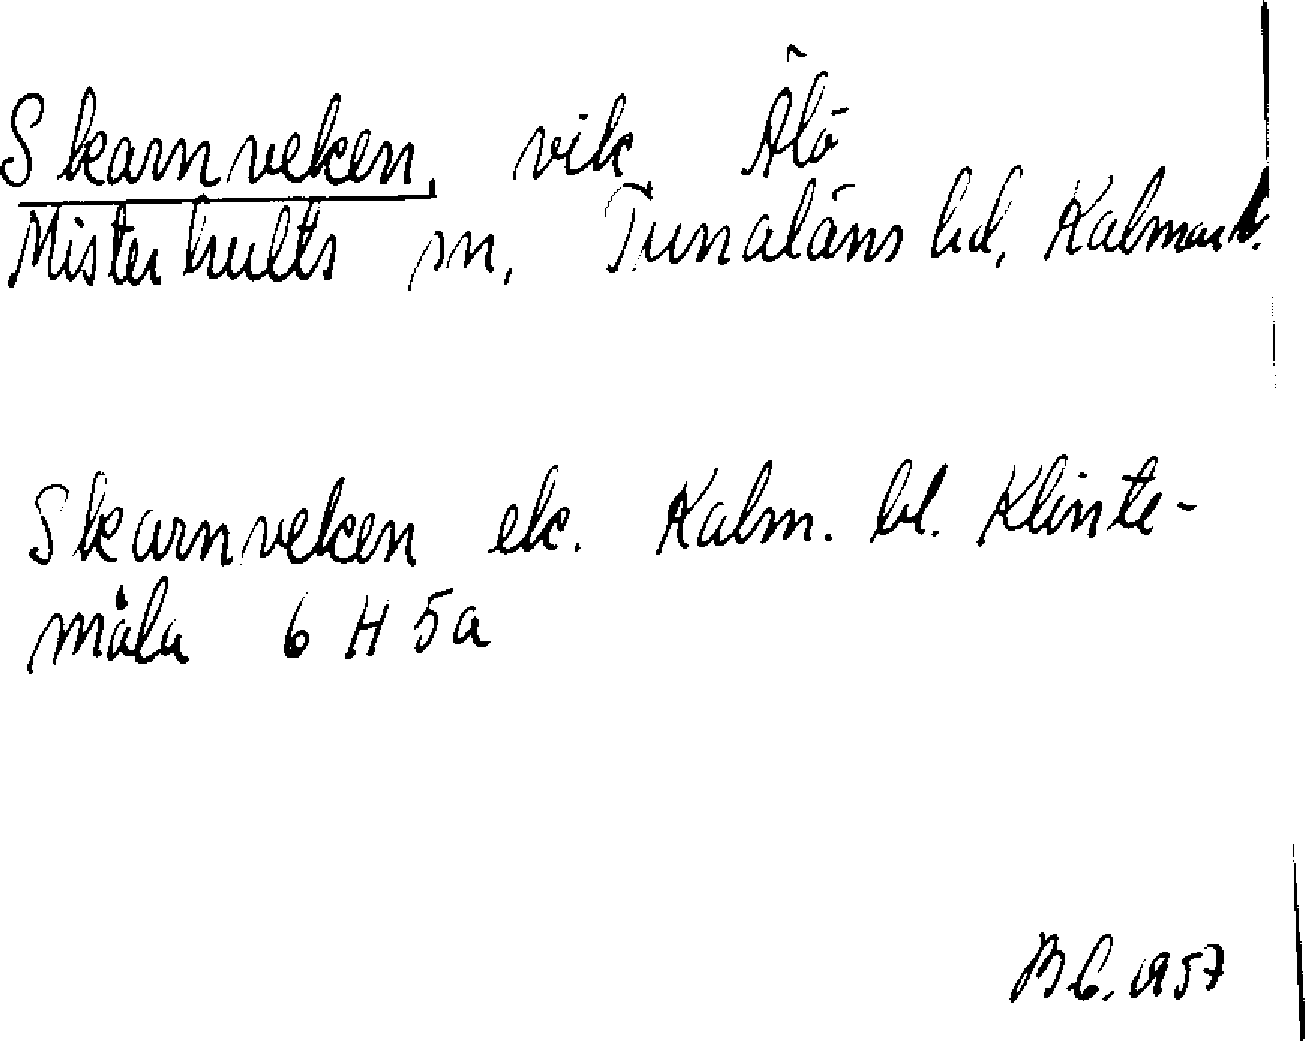 Skarnveken, vik Älö
Misterhults sn, Tunaläns hd, Kalmar l.
Skarnveken ek. Kalm. bl. Klinte-
måla 6 H 5a
1957